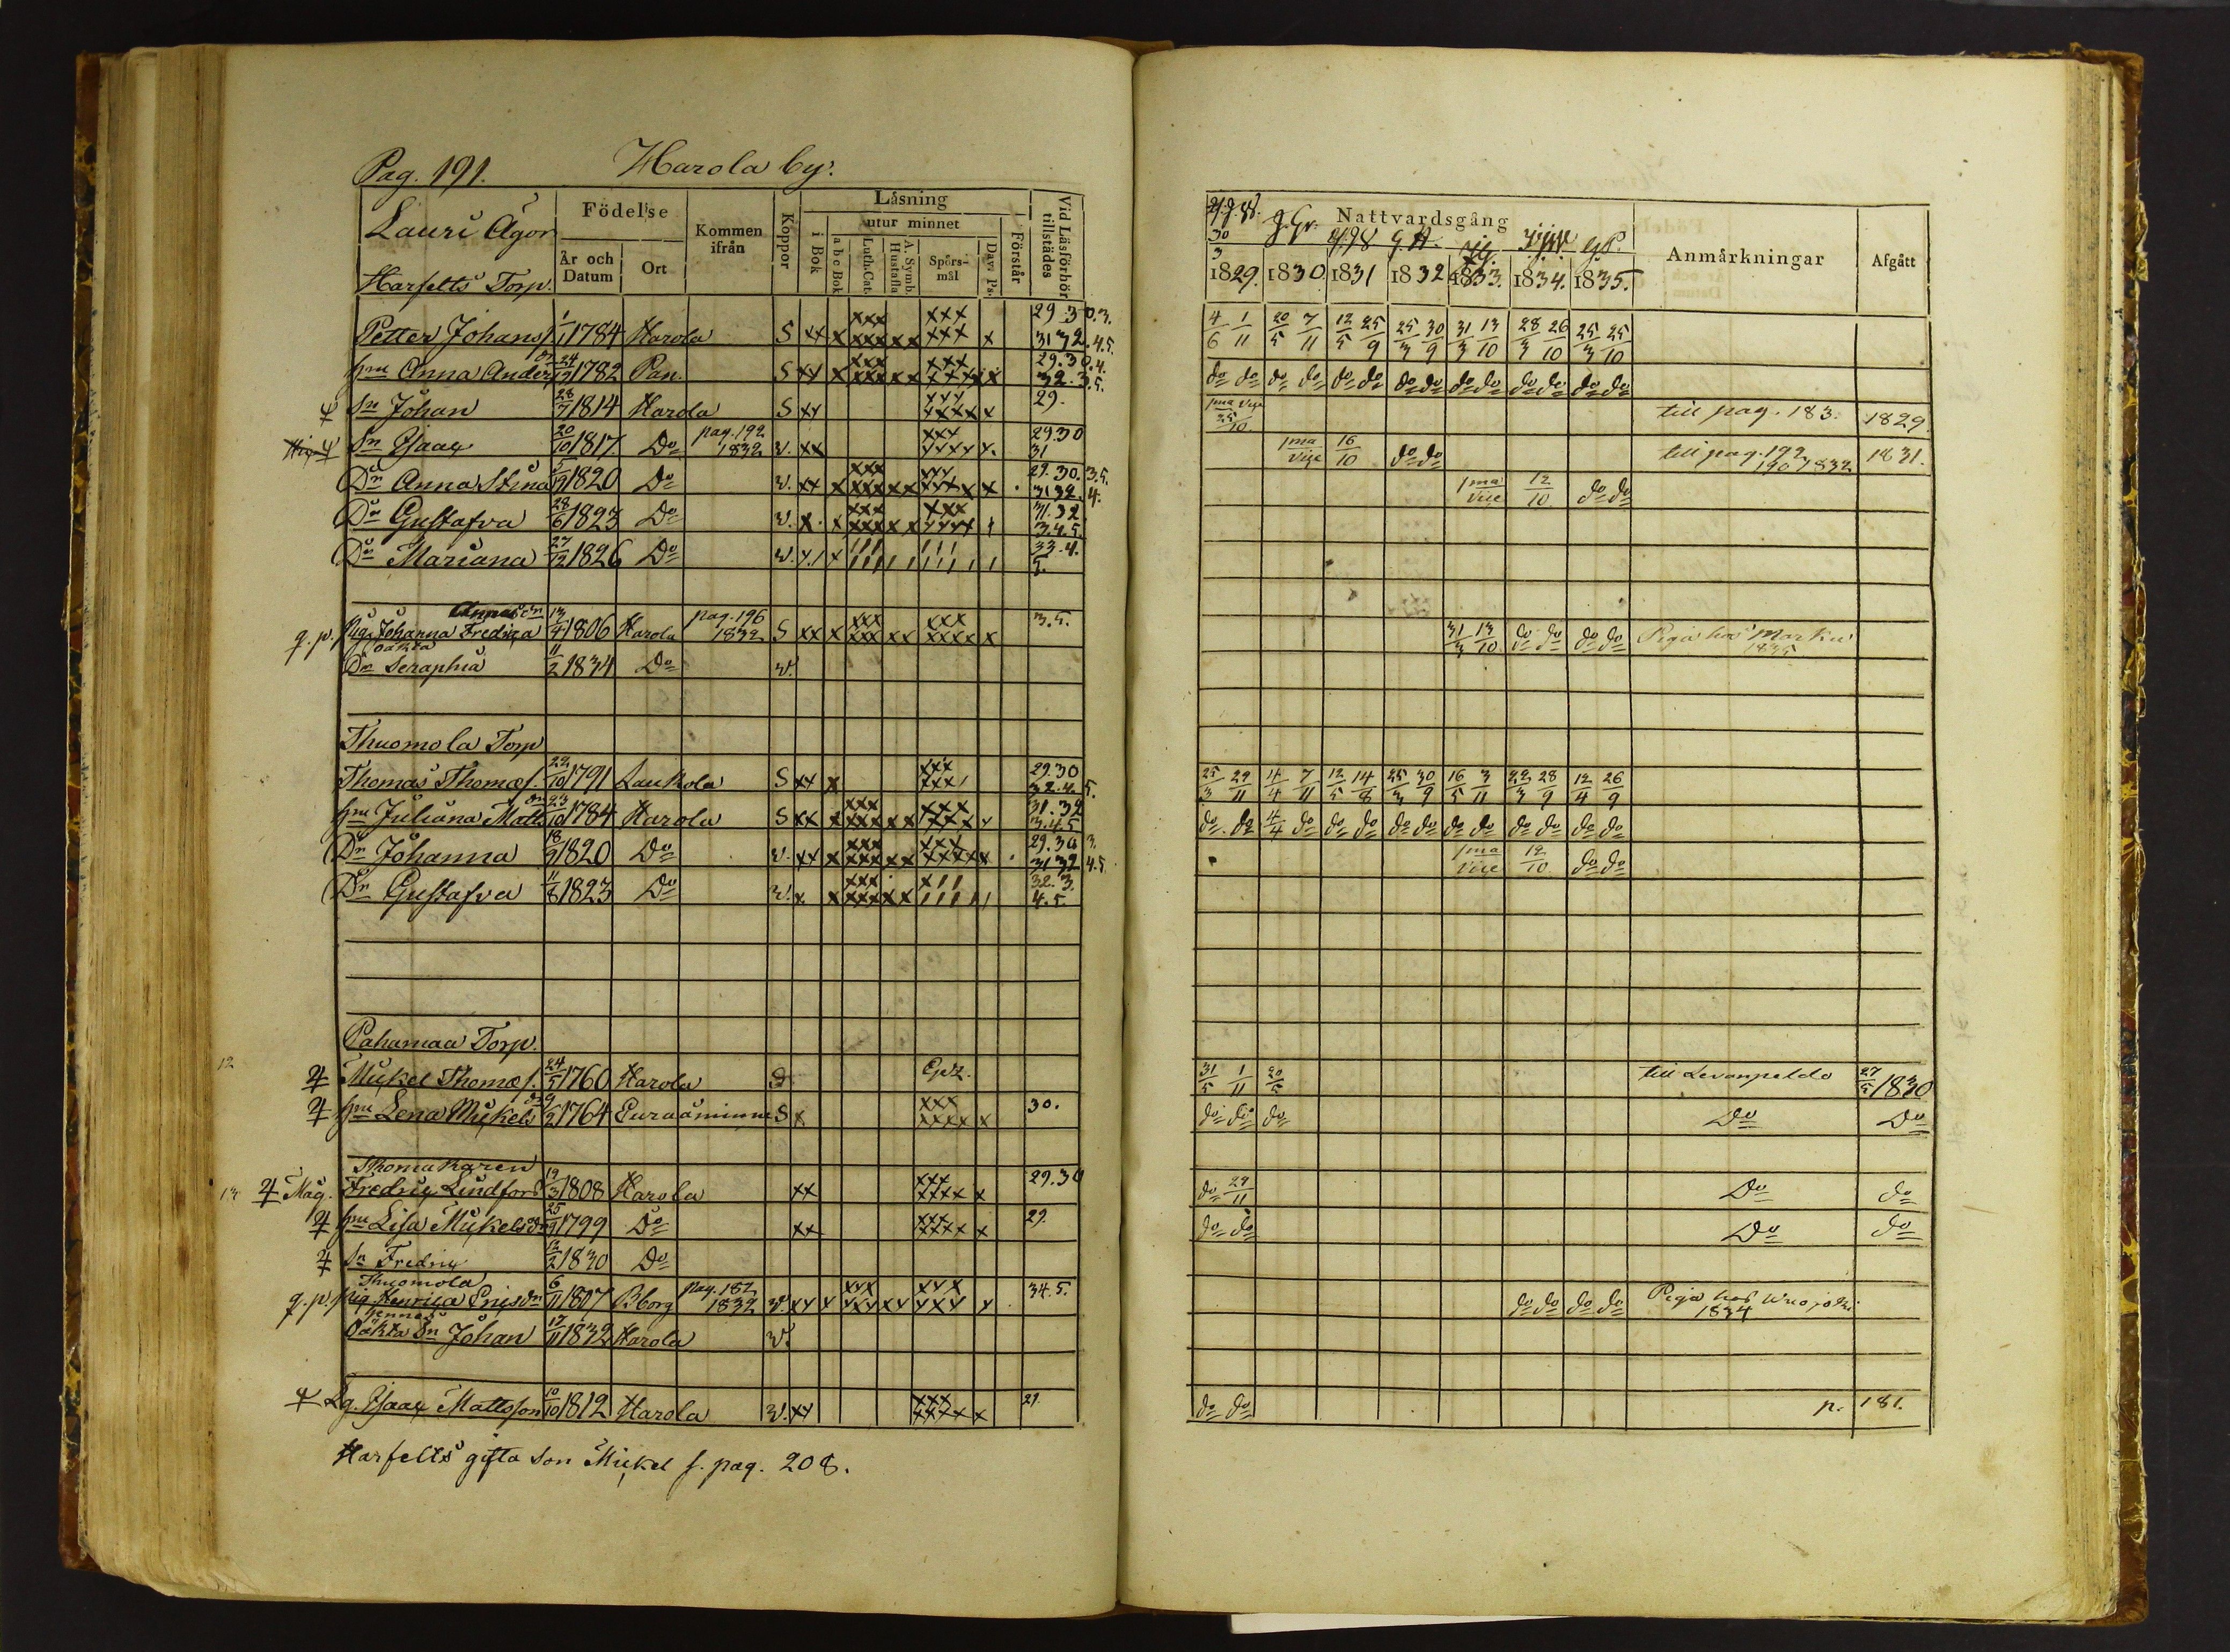 Pag. 191. Harola by.
Lauri Ägor
Harfelts Torp.
Födelse
År och Datum
Ort
Kommen ifrån
Koppor
Läsning
i Bok
utur minnet
a b c Bok
Luth. Cat.
A. Symb. Hustafla
Spörs-mål
Dav. Ps.
Förstår
Vid Läsförhör tillstädes
Petter Johans 1/1 1784 Harola S xx x xxx xxxxx xxx xxx x 29. 30. 3. 31 32. 4. 5.
hru Anna Anders dr 24/12 1782 Pan. S xx x xxx xxxxx xxx xxxx x 29. 30. 4. 32. 3. 5.
Sn Johan 28/7 1814 Harola S xx xxx xxxx x 29.
Sn Isaac 20/10 1817 Do pag. 192 1832 v. xx xxx xxxx x. 29. 30 31
Dr Anna Stina 5/9 1820 Do v. xx x xxx xxxxx xxx xxxx x 29. 30. 3. 5. 31 32. 4.
Dr Gustafva 28/6 1823 Do v. x. x xxx xxxxx xxx xxxx 31. 32 3. 4. 5.
Dr Mariana 27/12 1826 Do v. 33. 4. 5.
q. p. Pig. Johanna Fredrica 13/4 1806 Harola pag. 196 1832 S xx x xxx xxxxx xxx xxxx x 3. 5.
oäkta
Dr Seraphia 11/2 1834 Do v.
Thuomola Torp
Thomas Thomæs. 22/10 1791 Laukola S xx x xxx xxx 29. 30 32. 4. 5.
hru Juliana Matts dr 23/10 1784 Harola S xx x xxx xxxxx xxx xxxx 31. 32 3. 4. 5
Dr Johanna 18/9 1820 Do v. xx x xxx xxxxx xxx xxxxx 29. 30 3. 31 32 4. 5.
Dr Gustafva 11/8 1823 Do v. x x xxx xxxxx 32. 3. 4. 5.
Pahamaa Torp.
12
Mickel Thomæs. 24/5 1760 Harola S
hru Lena Mickels dr 9/2 1764 Euraåminne S x xxx xxxx x 30.
Skomakaren
13 Mag. Fredric Lindfors 19/3 1808 Harola xx xxx xxxx x 29. 30
hru Lisa Mickelsdr 25/9 1799 Do xx xxx xxxx x 29.
Sn Fredric 12/2 1830 Do
Thuomola
q. p. pig. Henrica Ericsdr 6/11 1807 Bborg pag. 182 1832 v. xx x xxx xxxxx xxx xxx x 34. 5.
hennes
oäkta Sn Johan 17/11 1832 Harola v.
Dg. Isaac Mattsson 10/10 1812 Harola v. xx xxx xxxxx x 29.
Harfelts gifta Son Mickel s. pag. 208.
Nattvardsgång
Anmärkningar
Afgått
1829. 1830. 1831 1832 1833. 1834. 1835.
4/6 1/11 20/5 7/11 12/5 25/9 25/3 30/9 31/3 13/10 28/3 26/10 25/3 25/10
do do do do do do do do do do do do do do
1ma vice 25/10 till pag. 183. 1829
1ma vice 16/10 do do till pag. 192 1831.
1ma vice 12/10 do do
31/3 13/10 do do do do Piga hos Marku 1835
25/3 29/11 4/4 7/11 12/5 14/8 25/3 30/9 16/5 3/11 22/3 28/9 12/4 26/9
do do 4/4 do do do do do do do do do do do
1ma vice 12/10 do do
31/5 1/11 20/5 till Levanpeldo 27/5 1830
do do do Do Do
do 29/11 Do do
do do Do do
do do do do Piga hos 1834
do do p. 181.